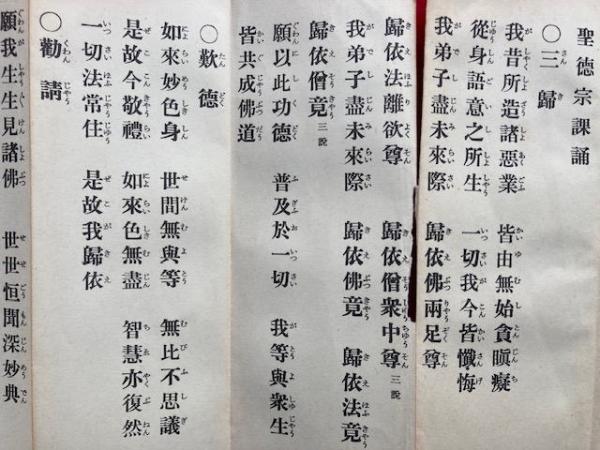 聖德宗課誦
〇三歸
我昔所造諸惡業　皆由無始貪瞋癡
從身語意之所生　一切我今皆懺悔
我弟子盡未來際　歸依佛兩足尊
歸依法離欲尊　歸依僧衆中尊 三說
我弟子盡未來際　歸依佛竟　歸依法竟
歸依僧竟 三說
願以此功德　普及於一切　我等與衆生
皆共成佛道
〇歎德
如來妙色身　世間無與等　無比不思議
是故今敬禮　如來色無盡　智慧亦復然
一切法常住　是故我歸依
〇勸請
願我生生見諸佛　世世恒聞深妙典